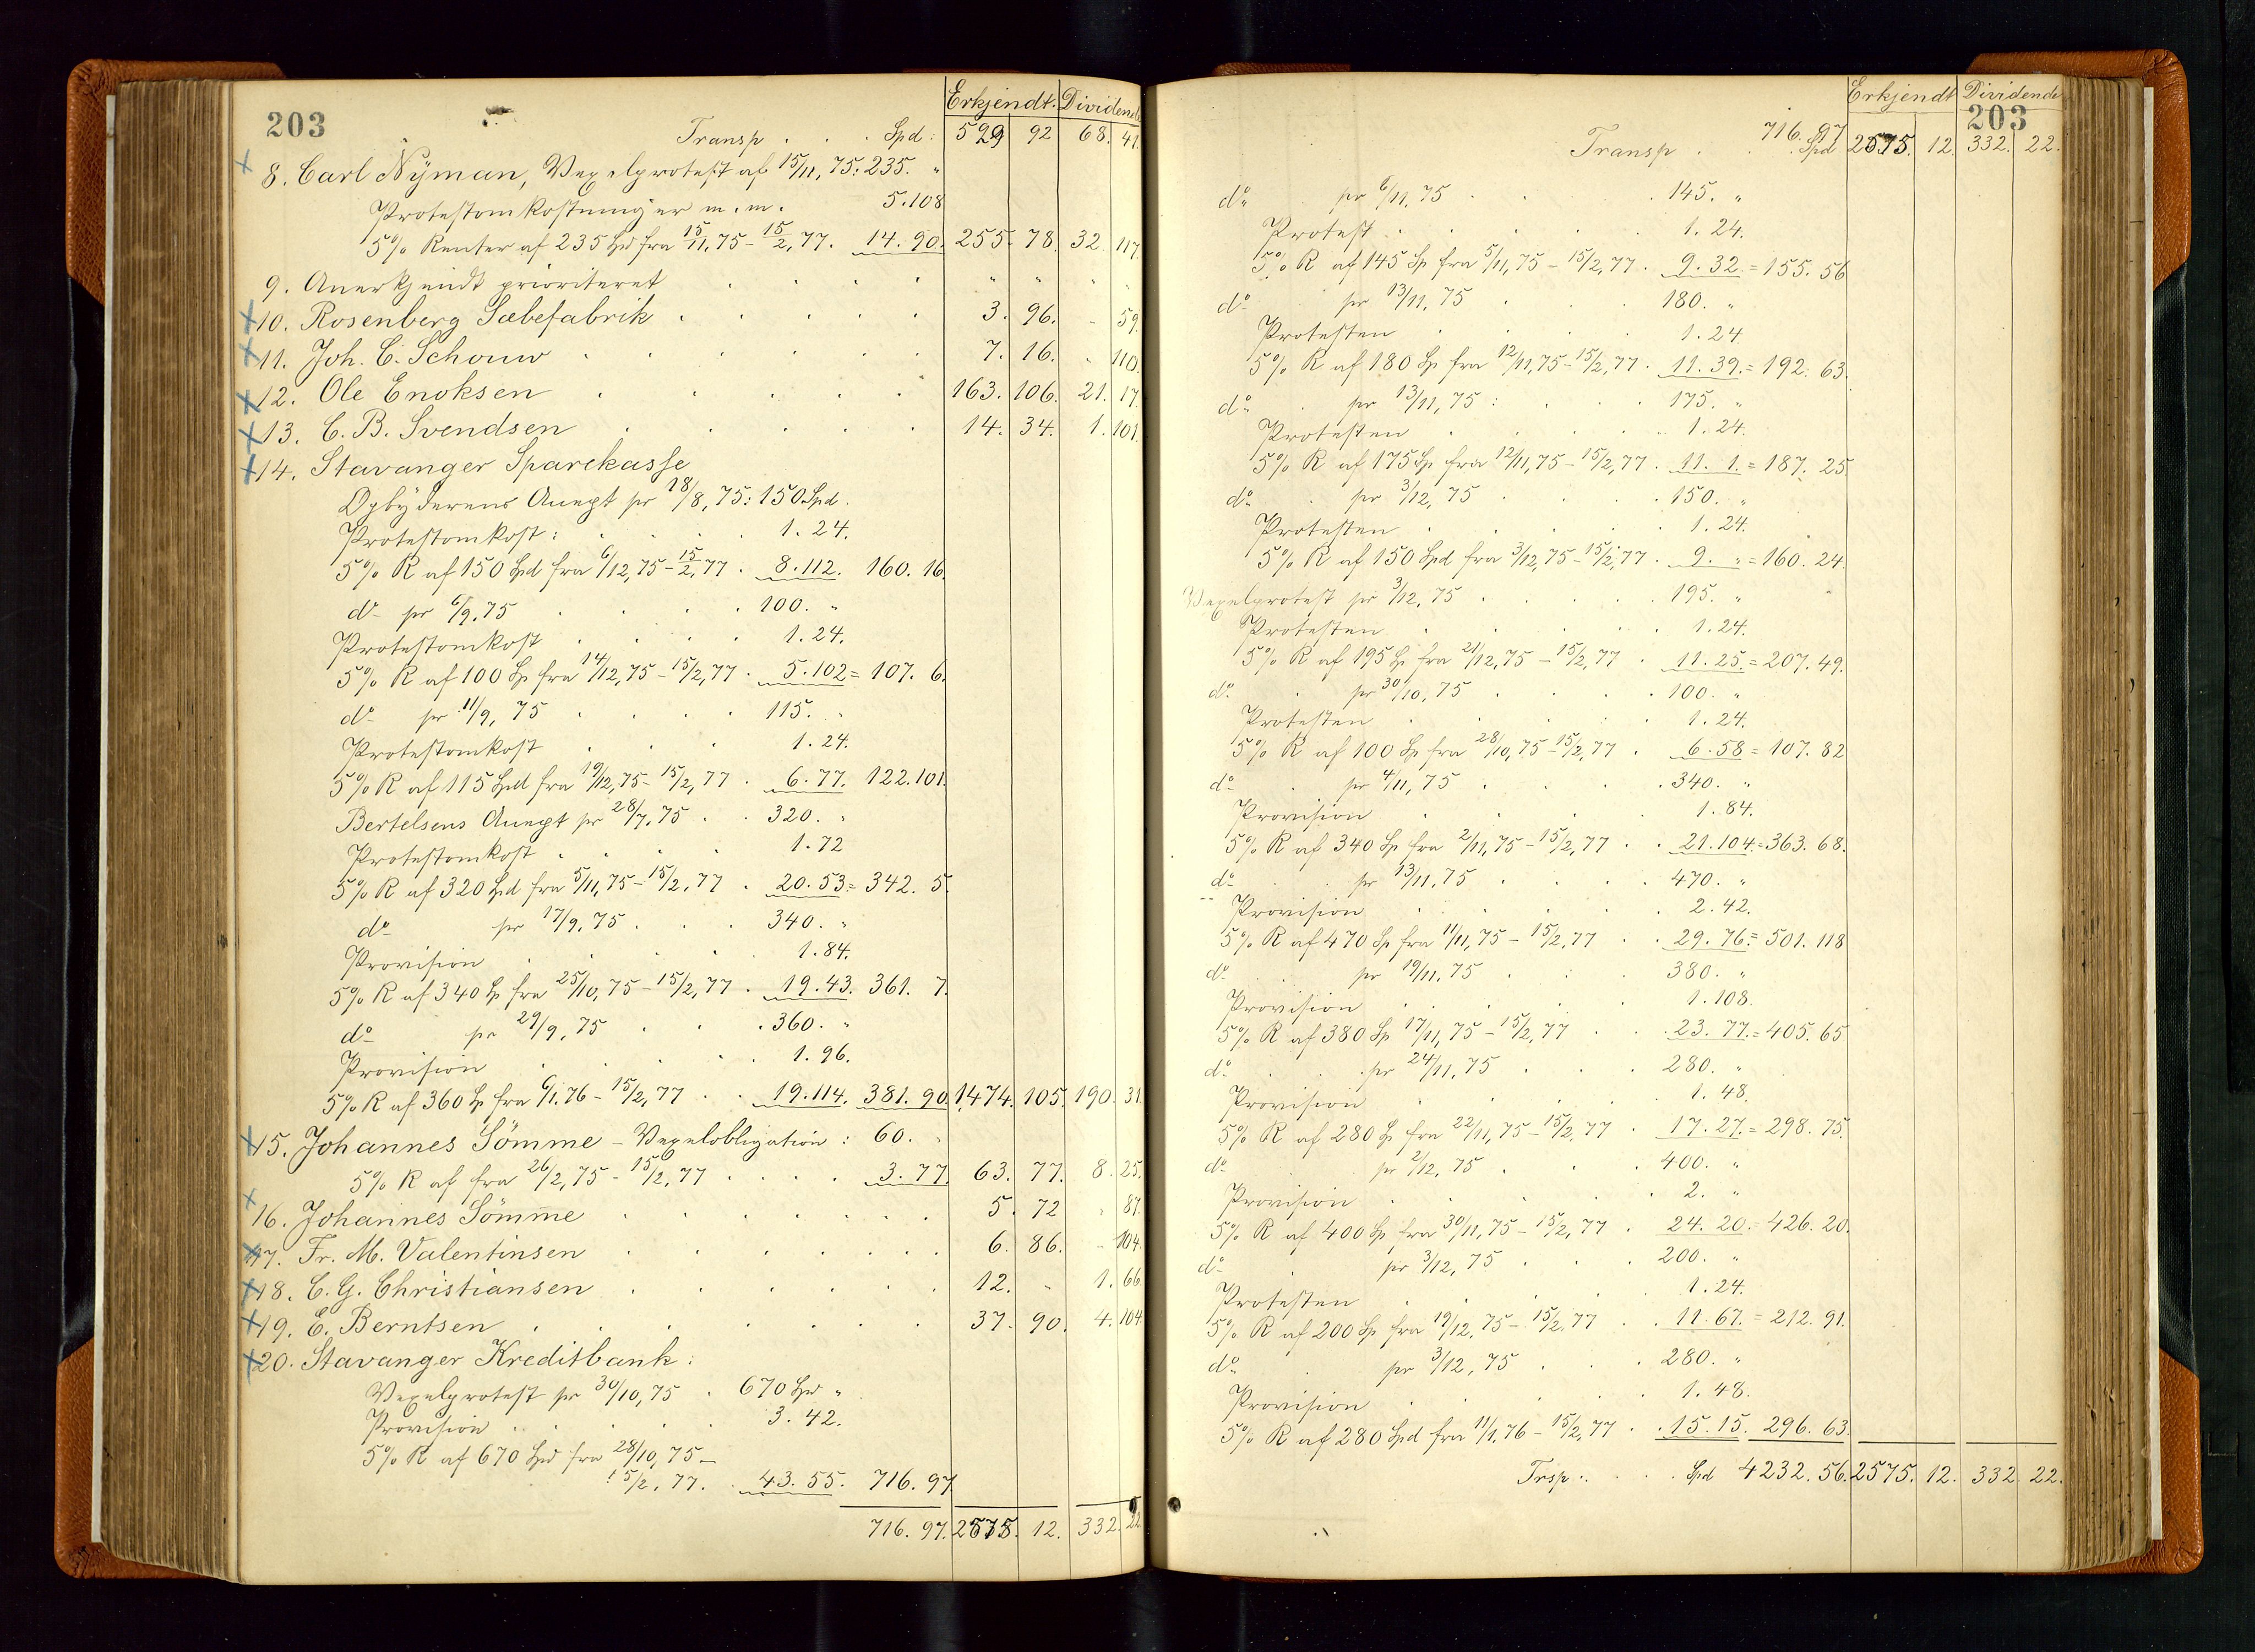 203
Erkjendt. Dividende
Transp . . . Spd: 529 92 68. 41.
8. Carl Nÿman, Vexelprotest af 15/11, 75: 235. "
Protestomkostninger m. m. 5.108
5% Renter af 235 Spd fra 15/11, 75 - 15/2, 77. 14. 90. 255. 78. 32. 117.
9. Anerkjendt prioriteret . . . . " " " "
10. Rosenberg Sæbefabrik . . . . . 3. 96. - 59.
11. Joh. C. Schouw . . . . . 7. 16. " 110.
12. Ole Enoksen . . . . . 163. 106. 21. 17.
13. C. B. Svendsen . . . . . 14. 34. 1. 101.
14. Stavanger Sparekasse
Opbyderens Accept pr 18/8, 75: 150 Spd.
Protestomkost: . . . . 1. 24.
5% R af 150 Spd fra 6/12, 75 - 15/2, 77 . 8. 112. 160. 16.
do pr 6/9. 75 . . . . 100. "
Protestomkost . . . . 1. 24.
5% R af 100 Sp fra 14/12, 75 - 15/2, 77 . 5. 102 = 107. 6.
do pr 11/9, 75 . . . . 115. "
Protestomkost . . . 1. 24.
5% R af 115 Spd fra 19/12, 75 - 15/2, 77 . 6. 77. 122. 101.
Bertelsens Accept pr 28/7. 75 . . 320. "
Protestomkost . . . . 1. 72
5% R af 320 Spd fra 5/11, 75 - 15/2, 77 . 20. 53. = 342. 5.
do pr 17/9. 75 . . . 340. "
Provision . . . . . 1. 84.
5% R af 340 Sp fra 25/10, 75 - 15/2, 77 . 19. 43. 361. 7.
do pr 29/9, 75 . . . 360. "
Provision . . . . . 1. 96.
5% R af 360 Sp fra 6/1. 76 - 15/2, 77 . . 19. 114. 381. 90. 1474. 105. 190. 31.
15. Johannes Sömme - Vexelobligation: 60. "
5% R af fra 26/2, 75 - 15/2, 77 . . . . 3. 77. 63. 77. 8. 25.
16. Johannes Sömme . . . . . . . 5. 72 " 87.
17. Fr. M. Valentinsen . . . . . . . 6. 86. - 104.
18. C. G. Christiansen . . . . . . . 12. " 1. 66
19. E. Berntsen . . . . . . . 37. 90. 4. 104
20. Stavanger Kreditbank:
Vexelprotest pr 30/10, 75 . 670 Spd "
Provision . . . . . 3. 42.
5% R af 670 Spd fra 28/10, 75 -
15/2, 77. . 43. 55. 716. 97.
716. 97. 2575. 12. 332. 22.
Erkjendt Dividende
203
716. 97
Transp . . . Spd 2575. 12. 332. 22.
do pr 6/11, 75 . . . . 145. "
Protest . . . . . 1. 24.
5% R af 145 Sp fra 5/11, 75 - 15/2, 77 . 9. 32. = 155. 56
do pr 13/11, 75 . . . 180. "
Protesten . . . . 1. 24
5% R af 180 Sp fra 12/11, 75 - 15/2, 77 . 11. 39. = 192. 63.
do pr 13/11, 75: . . . 175. "
Protesten . . . . . 1. 24.
5% R af 175 Sp fra 12/11, 75 - 15/2, 77 . 11. 1. = 187. 25
do pr 3/12, 75 . . . . 150. "
Protesten . . . . . 1. 24.
5% R af 150 Spd fra 3/12, 75 - 15/2, 77 . 9. " = 160. 24.
Vexelprotest pr 3/12, 75 . . . . . 195. "
Protesten . . . . . 1. 24.
5% R af 195 Sp fra 21/12, 75 - 15/2, 77 . 11. 25. = 207. 49.
do pr 30/10, 75 . . . . 100. "
Protesten . . . . . 1. 24.
5% R af 100 Sp fra 28/10, 75 - 15/2, 77 . 6. 58 = 107. 82
do pr 4/11, 75 . . . . 340. "
Provision . . . . . 1. 84.
5% R af 340 Sp fra 2/11, 75 - 15/2, 77 . . 21. 104. = 363. 68.
do pr 13/11, 75 . . . . 470. "
Provision . . . . . 2. 42.
5% R af 470 Sp fra 11/11, 75 - 15/2, 77 . . 29. 76. = 501. 118
do pr 19/11, 75 . . . 380. "
Provision . . . . . 1. 108.
5% R af 380 Sp 17/11, 75 - 15/2, 77 . . 23. 77. = 405. 65
do pr 24/11, 75 . . . 280. "
Provision . . . . . 1. 48.
5% R af 280 Sp fra 22/11, 75 - 15/2, 77 . 17. 27. = 298. 75.
do pr 2/12, 75 . . . 400. "
Provision . . . . . 2. "
5% R af 400 Sp fra 30/11, 75 - 15/2, 77 . 24. 20. = 426. 20.
do pr 3/12, 75 . . . 200. "
Protesten . . . . . 1. 24.
5% R af 200 Sp fra 19/12, 75 - 15/2, 77 . . 11. 67. = 212. 91.
do pr 3/12, 75 . . . 280. "
Provision . . . . . 1. 48.
5% R af 280 Spd fra 11/1, 76 - 15/2, 77 . . 15. 15. 296. 63.
Trsp . . . . Spd 4232. 56. 2575. 12. 332. 22.